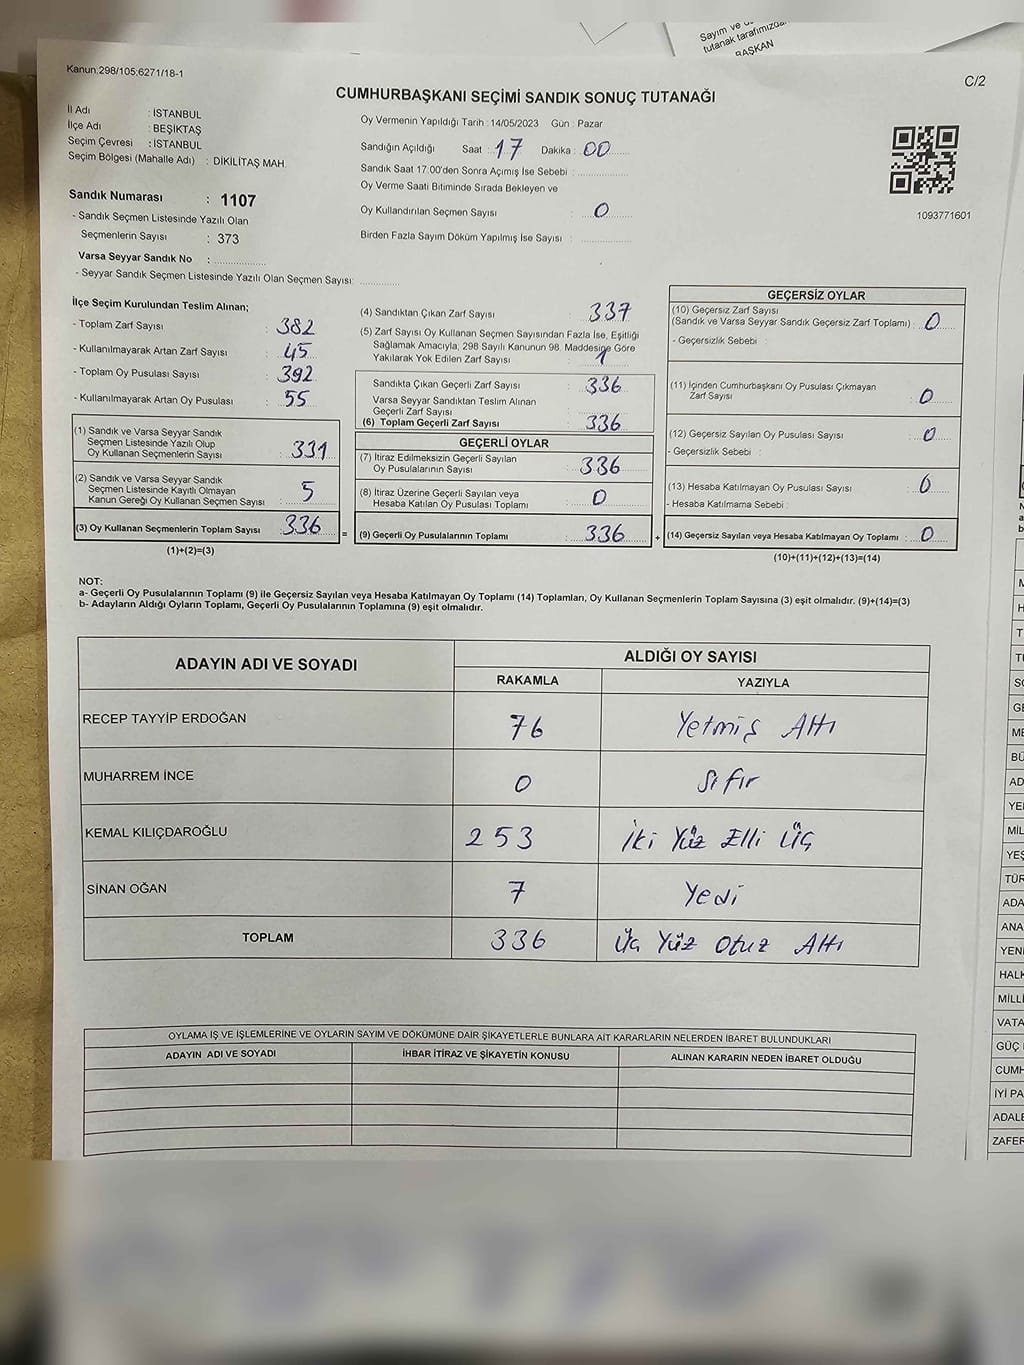 Sayım ve
tutanak tarafımızda
BAŞKAN
Kanun:298/105;6271/18-1
C/2
CUMHURBAŞKANI SEÇİMİ SANDIK SONUÇ TUTANAĞI
İl Adı : İSTANBUL
İlçe Adı : BEŞİKTAŞ
Seçim Çevresi : İSTANBUL
Seçim Bölgesi (Mahalle Adı) : DİKİLİTAŞ MAH.
Oy Vermenin Yapıldığı Tarih : 14/05/2023 Gün : Pazar
Sandığın Açıldığı Saat : 17 Dakika : 00
Sandık Saat 17:00'den Sonra Açımış İse Sebebi :
Oy Verme Saati Bitiminde Sırada Bekleyen ve
Oy Kullandırılan Seçmen Sayısı : 0
Birden Fazla Sayım Döküm Yapılmış İse Sayısı :
1093771601
Sandık Numarası : 1107
- Sandık Seçmen Listesinde Yazılı Olan
Seçmenlerin Sayısı : 373
Varsa Seyyar Sandık No :
- Seyyar Sandık Seçmen Listesinde Yazılı Olan Seçmen Sayısı:
İlçe Seçim Kurulundan Teslim Alınan;
- Toplam Zarf Sayısı : 382
- Kullanılmayarak Artan Zarf Sayısı : 45
- Toplam Oy Pusulası Sayısı : 392
- Kullanılmayarak Artan Oy Pusulası : 55
(1) Sandık ve Varsa Seyyar Sandık
Seçmen Listesinde Yazılı Olup
Oy Kullanan Seçmenlerin Sayısı : 331
(2) Sandık ve Varsa Seyyar Sandık
Seçmen Listesinde Kayıtlı Olmayan
Kanun Gereği Oy Kullanan Seçmen Sayısı : 5
(3) Oy Kullanan Seçmenlerin Toplam Sayısı : 336
=
(1)+(2)=(3)
(4) Sandıktan Çıkan Zarf Sayısı : 337
(5) Zarf Sayısı Oy Kullanan Seçmen Sayısından Fazla İse, Eşitliği
Sağlamak Amacıyla; 298 Sayılı Kanunun 98. Maddesine Göre
Yakılarak Yok Edilen Zarf Sayısı : 1
Sandıkta Çıkan Geçerli Zarf Sayısı : 336
Varsa Seyyar Sandıktan Teslim Alınan
Geçerli Zarf Sayısı :
(6) Toplam Geçerli Zarf Sayısı : 336
GEÇERLİ OYLAR
(7) İtiraz Edilmeksizin Geçerli Sayılan
Oy Pusulalarının Sayısı : 336
(8) İtiraz Üzerine Geçerli Sayılan veya
Hesaba Katılan Oy Pusulası Toplamı : 0
(9) Geçerli Oy Pusulalarının Toplamı : 336
+
GEÇERSİZ OYLAR
(10) Geçersiz Zarf Sayısı
(Sandık ve Varsa Seyyar Sandık Geçersiz Zarf Toplamı) : 0
- Geçersizlik Sebebi :
(11) İçinden Cumhurbaşkanı Oy Pusulası Çıkmayan
Zarf Sayısı : 0
(12) Geçersiz Sayılan Oy Pusulası Sayısı : 0
- Geçersizlik Sebebi :
(13) Hesaba Katılmayan Oy Pusulası Sayısı : 0
- Hesaba Katılmama Sebebi :
(14) Geçersiz Sayılan veya Hesaba Katılmayan Oy Toplamı : 0
(10)+(11)+(12)+(13)=(14)
NOT:
a- Geçerli Oy Pusulalarının Toplamı (9) ile Geçersiz Sayılan veya Hesaba Katılmayan Oy Toplamı (14) Toplamları, Oy Kullanan Seçmenlerin Toplam Sayısına (3) eşit olmalıdır. (9)+(14)=(3)
b- Adayların Aldığı Oyların Toplamı, Geçerli Oy Pusulalarının Toplamına (9) eşit olmalıdır.
ADAYIN ADI VE SOYADI ALDIĞI OY SAYISI
RAKAMLA YAZIYLA
RECEP TAYYİP ERDOĞAN 76 Yetmiş Altı
MUHARREM İNCE 0 Sıfır
KEMAL KILIÇDAROĞLU 253 İki Yüz Elli Üç
SİNAN OĞAN 7 Yedi
TOPLAM 336 Üç Yüz Otuz Altı
OYLAMA İŞ VE İŞLEMLERİNE VE OYLARIN SAYIM VE DÖKÜMÜNE DAİR ŞİKAYETLERLE BUNLARA AİT KARARLARIN NELERDEN İBARET BULUNDUKLARI
ADAYIN ADI VE SOYADI İHBAR İTİRAZ VE ŞİKAYETİN KONUSU ALINAN KARARIN NEDEN İBARET OLDUĞU
YENİ
HALK
MİLLİ
VATA
GÜÇ
CUMH
İYİ PA
ADALE
ZAFER